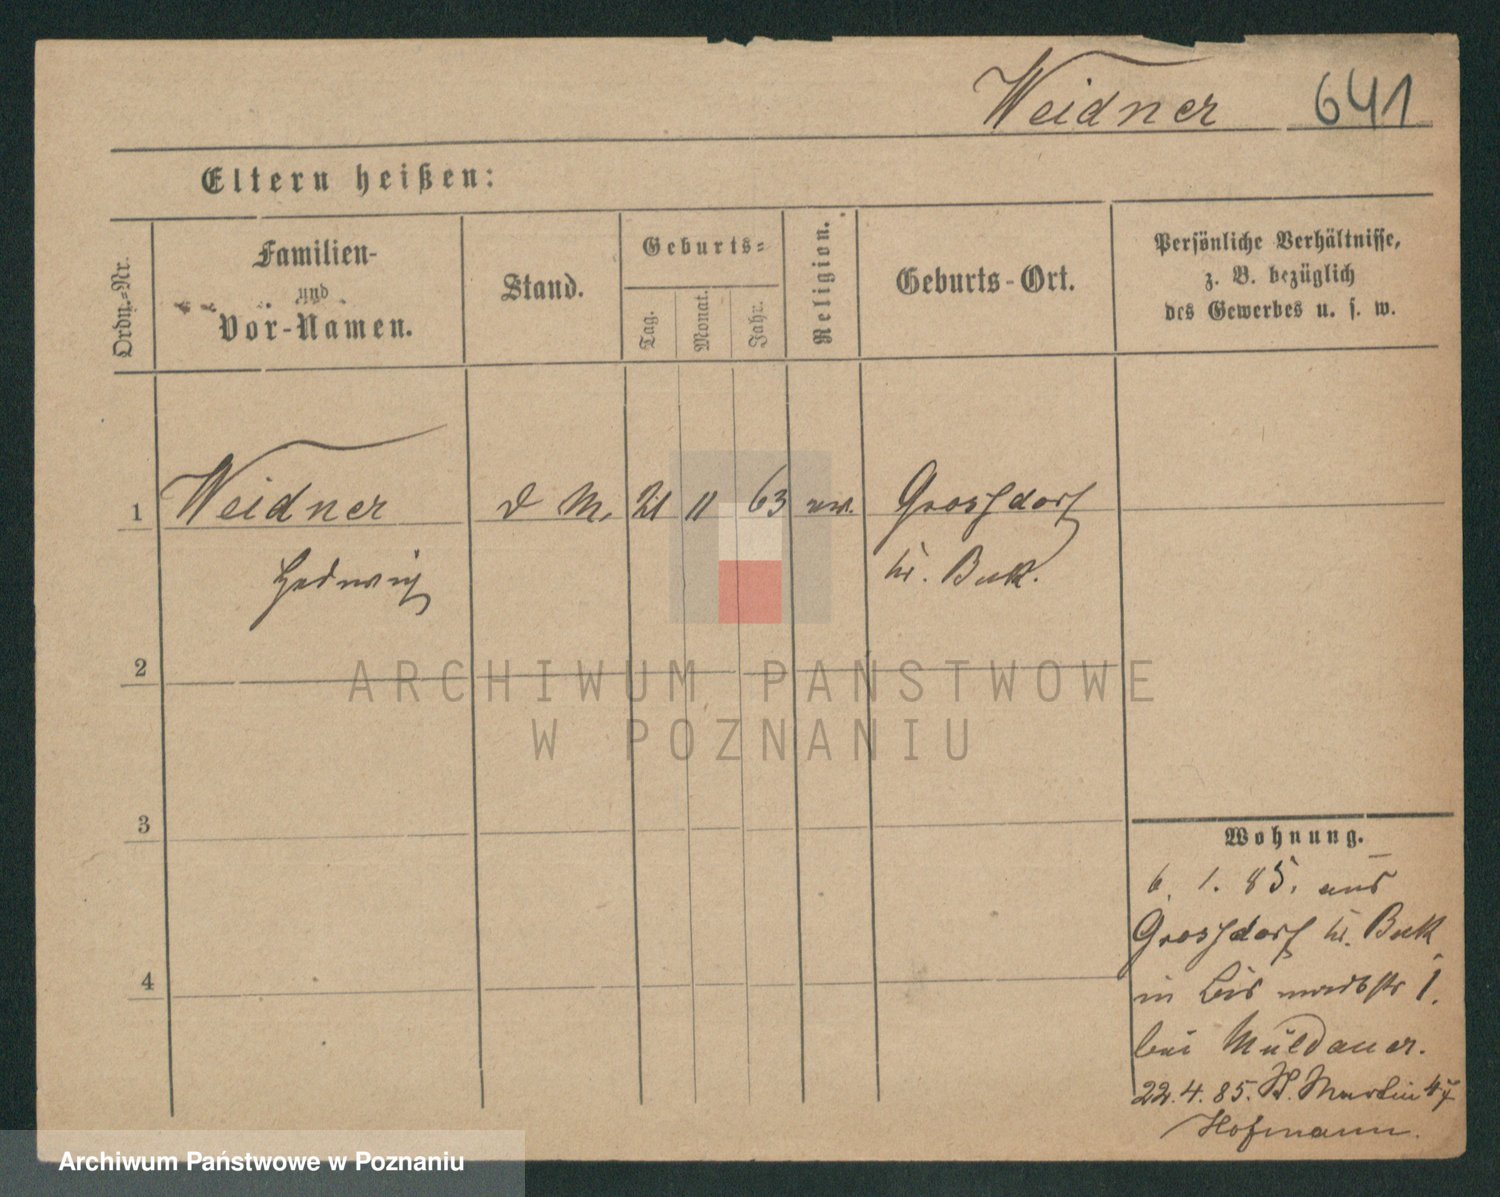 Weidner 641
Eltern heißen:
Ordn.-Nr.
Familien-
und
Vor-Namen.
Stand.
Geburts-
Tag.
Monat.
Jahr.
Religion.
Geburts-Ort.
Persönliche Verhältnisse,
z. B. bezüglich
des Gewerbes u. s. w.
1 Weidner D M. 21 11 63 ev. Grossdorf
Hedwig Kr. Buk.
2
3
4
Wohnung.
6. 1. 85. aus
Grossdorf Kr. Buk
in 1.
bei Müldauer.
22. 4. 85. St. Martin 47
Hofmann.
ARCHIWUM PAŃSTWOWE
W POZNANIU
Archiwum Państwowe w Poznaniu